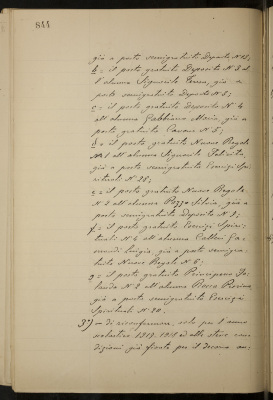 844
già a posto semigratuito Deposito N 15;
b = il posto gratuito Deposito N 3 al-
l'alunna Signorile Teresa, già a
posto semigratuito Deposito N 8;
c = il posto gratuito Deposito N 4
all'alunna Gabbiani Maria, già a
posto gratuito N 5;
d = il posto gratuito Nuove Regole
N 1 all'alunna Signorile Felicita,
già a posto semigratuito Esercizi Spi-
rituali N 25;
e = il posto gratuito Nuove Regole
N 2 all'alunna Pozzo Silvia, già a
posto semigratuito Deposito N 1;
f = il posto gratuito Esercizi Spiri-
tuali N 4 all'alunna
Luigia, già a posto semigra-
tuito Nuove Regole N 6;
g = il posto gratuito
N 2 all'alunna Rocco
già a posto semigratuito Esercizi
Spirituali N 20.
3°) – di riconfermare, solo per l'anno
scolastico 1917-1918 ed alle stesse con-
dizioni già fissate per il decorso an-